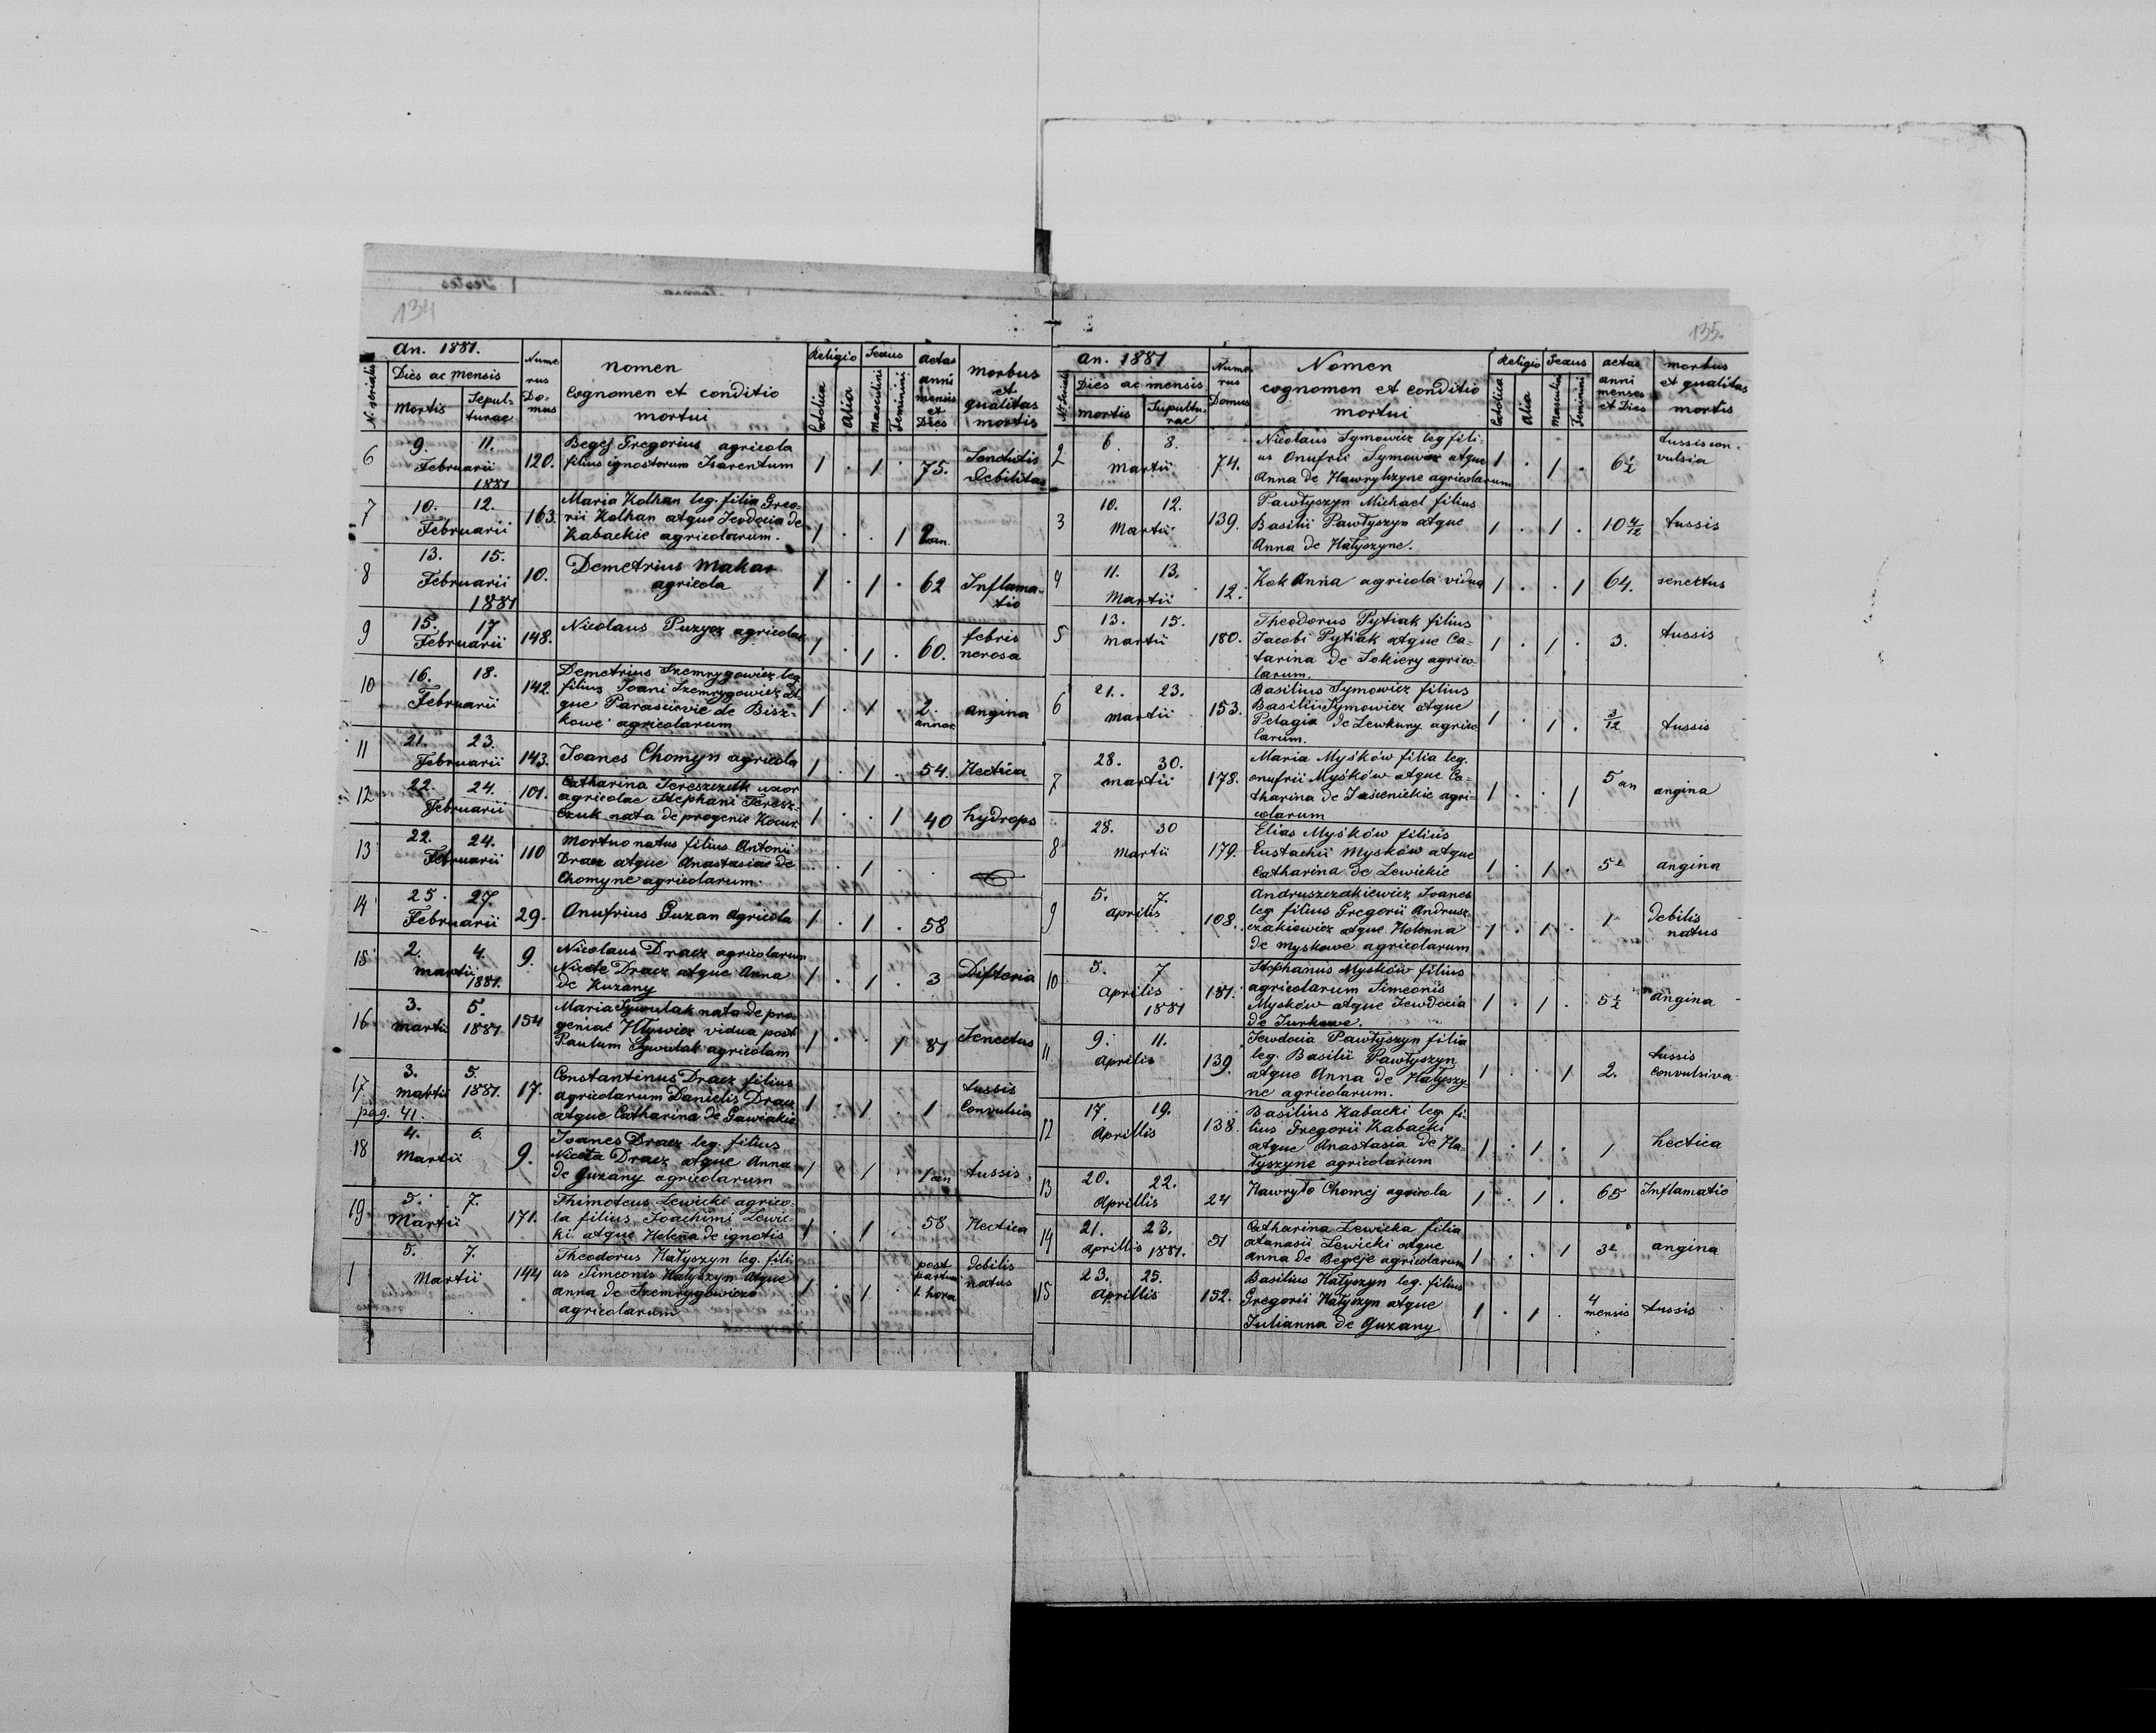 134
An. 1881.
N. serialis
Dies ac mensis
Mortis
Sepulturae
Numerus Domus
nomen
Cognomen et conditio
mortui
Religio
Catolica
Alia
Sexus
Masculini
Feminini
aetas
anni
mensis
et
Dies
morbus
et
qualitas
mortis
6 9. 11. Februarii 1881 120. Begej Gregorius agricola
filius ignostorum Parentum 1 . 1 . 75. Debilitas
7 10. 12. Februarii 163. Maria Kolhan leg. filia Grego-
rii Kolhan atque Jewdocia de
Kabackie agricolarum. 1 . . 1 2 an.
8 13. 15. Februarii 1881 10. Demetrius Makar
agricola 1 . 1 . 62 Inflama-
tio
9 15. 17 Februarii 148. Nicolaus Puzycz agricola 1 . 1 . 60. febris
nerosa
10 16. 18. Februarii 142. Demetrius Szemrygowicz leg
filius Joani Szemrygowicz at-
que Parascievie de Bisz-
kowe agricolarum 1 . 1 . 2. annor. angina
11 21. 23. Februarii 143. Joanes Chomyn agricola 1 . 1 . 54. Hectica
12 22. 24. Februarii 101. Catharina Tereszczuk uxor
agricolae Stephani Teresz-
czuk nata de progenie Kocur. 1 . . 1 40 hydrops
13 22. 24. Februarii 110 Mortuo natus filius Antonii
Dracz atque Anastasiae de
Chomyne agricolarum. . . 1 .
14 25. 27. Februarii 29. Anufrius Guzan Agricola 1 . 1 . 58
15 2. 4. martii 1881. 9. Nicolaus Dracz agricolarum
Nicole Dracz atque Anna
de Kuzany 1 . 1 . 3 Difteria
16 3. 5. martii 1881. 154 Maria Sywulak nata de pro-
geniae Hływicz vidua post
Paulum Sywulak agricolam 1 . . 1 81 Senectus
17 3. 5. martii 1881. pag. 41. 17. Constantinus Dracz filius
agricolarum Danielis Dracz
atque Catharina de Gawiakie 1 . 1 . 1 tussis
Convulsia
18 4. 6. Martii 9. Joanes Dracz leg. filius
Nicola Dracz atque Anna
de Guzany agricolarum 1 1 . 1 an tussis
19 5. 7. Martii 171. Thimoteus Lewicki agrico-
la filius Joachimi Lewic-
ki atque Helena de ignotis 1 . 1 . 58 Hectica
1 5. 7. Martii 144 Theodorus Hałyszyn leg. fili-
us Simeonis Hałyszyn atque
anna de Szemrygowiczo
agricolarum 1 . 1 . post
partum
1. hora debilis
natus
135.
An. 1881
Nr Serialis
Dies ac mensis
mortis
Sepulturae
Numerus Domus
Nomen
cognomen et conditio
mortui
Religio
Catolica
Alia
Sexus
Masculini
Feminini
aetas
anni
menses
et Dies
morbus
et qualitas
mortis
2 6 8. Martii 74. Nicolaus Symowicz leg fili-
us Onufrii Symowicz atque
Anna de Hawryłszyne agricolarum 1 . 1 . 6 1/2 tussis con-
vulsia
3 10. 12. Martii 139. Pawłyszyn Michael filius
Basilii Pawłyszyn atque
Anna de Hałyszyne. 1 . 1 . 10 tussis
4 11. 13. Martii 12. Kok Anna agricola vidua 1 . . 1 64. senectus
5 13. 15. martii 180. Theodorus Pytiak filius
Jacobi Pytiak atque Ca-
tarina de Sokiery agrico-
larum. 1 . 1 . 3. tussis
6 21. 23. martii 153. Basilius Symowicz filius
Basilii Symowicz atque
Pelagia de Lewkuny agrico
larum. 1 1 . 3/12 tussis
7 28. 30. martii 178. Maria Myśków filia leg.
onufrii Myśków atque Ca-
tharina de Jasienickie agri-
colarum 1 . . 1 5 an angina
8 28. 30 Martii 179. Elias Myśków filius
Eustachii Mysków atque
Catharina de Lewickie 1 . 1 . 5 angina
9 5. 7. aprilis 108. Andruszczakiewicz Joanes
leg filius Gregorii Andrusz-
czakiewicz atque Helenna
de myskowe agricolarum 1 . 1 . 1 debilis
natus
10 5. 7 Aprilis 1881 181. Stephanus Mysków filius
agricolarum Simeonis
Mysków atque Jewdocia
de Jurkowe. 1 . 1 . 5 1/2 angina
11 9. 11. aprilis 139. Jewdocia Pawłyszyn filia
leg. Basilii Pawłyszyn
atque Anna de Hałyszy-
ne agricolarum. 1 . . 1 2. tussis
convulsiva
12 17. 19. Aprillis 138. Basilius Kabacki leg fi-
lius Gregorii Kabacki
atque Anastasia de Ha-
łyszyne agricolarum 1 . 1 . 1 hectica
13 20. 22. Aprillis 24 Hawryło Chomej agricola 1 . 1 . 65 Inflamatio
14 21. 23. Aprillis 1881. 51 Catharina Lewicka filia
atanasii Lewicki atque
anna de Begeje agricolarum 1 . . 1 3 angina
15 23. 25. Aprillis 152. Basilius Hałyszyn leg. filius
Gregorii Hałyszyn atque
Julianna de Guzany 1 . 1 . 4
mensis tussis